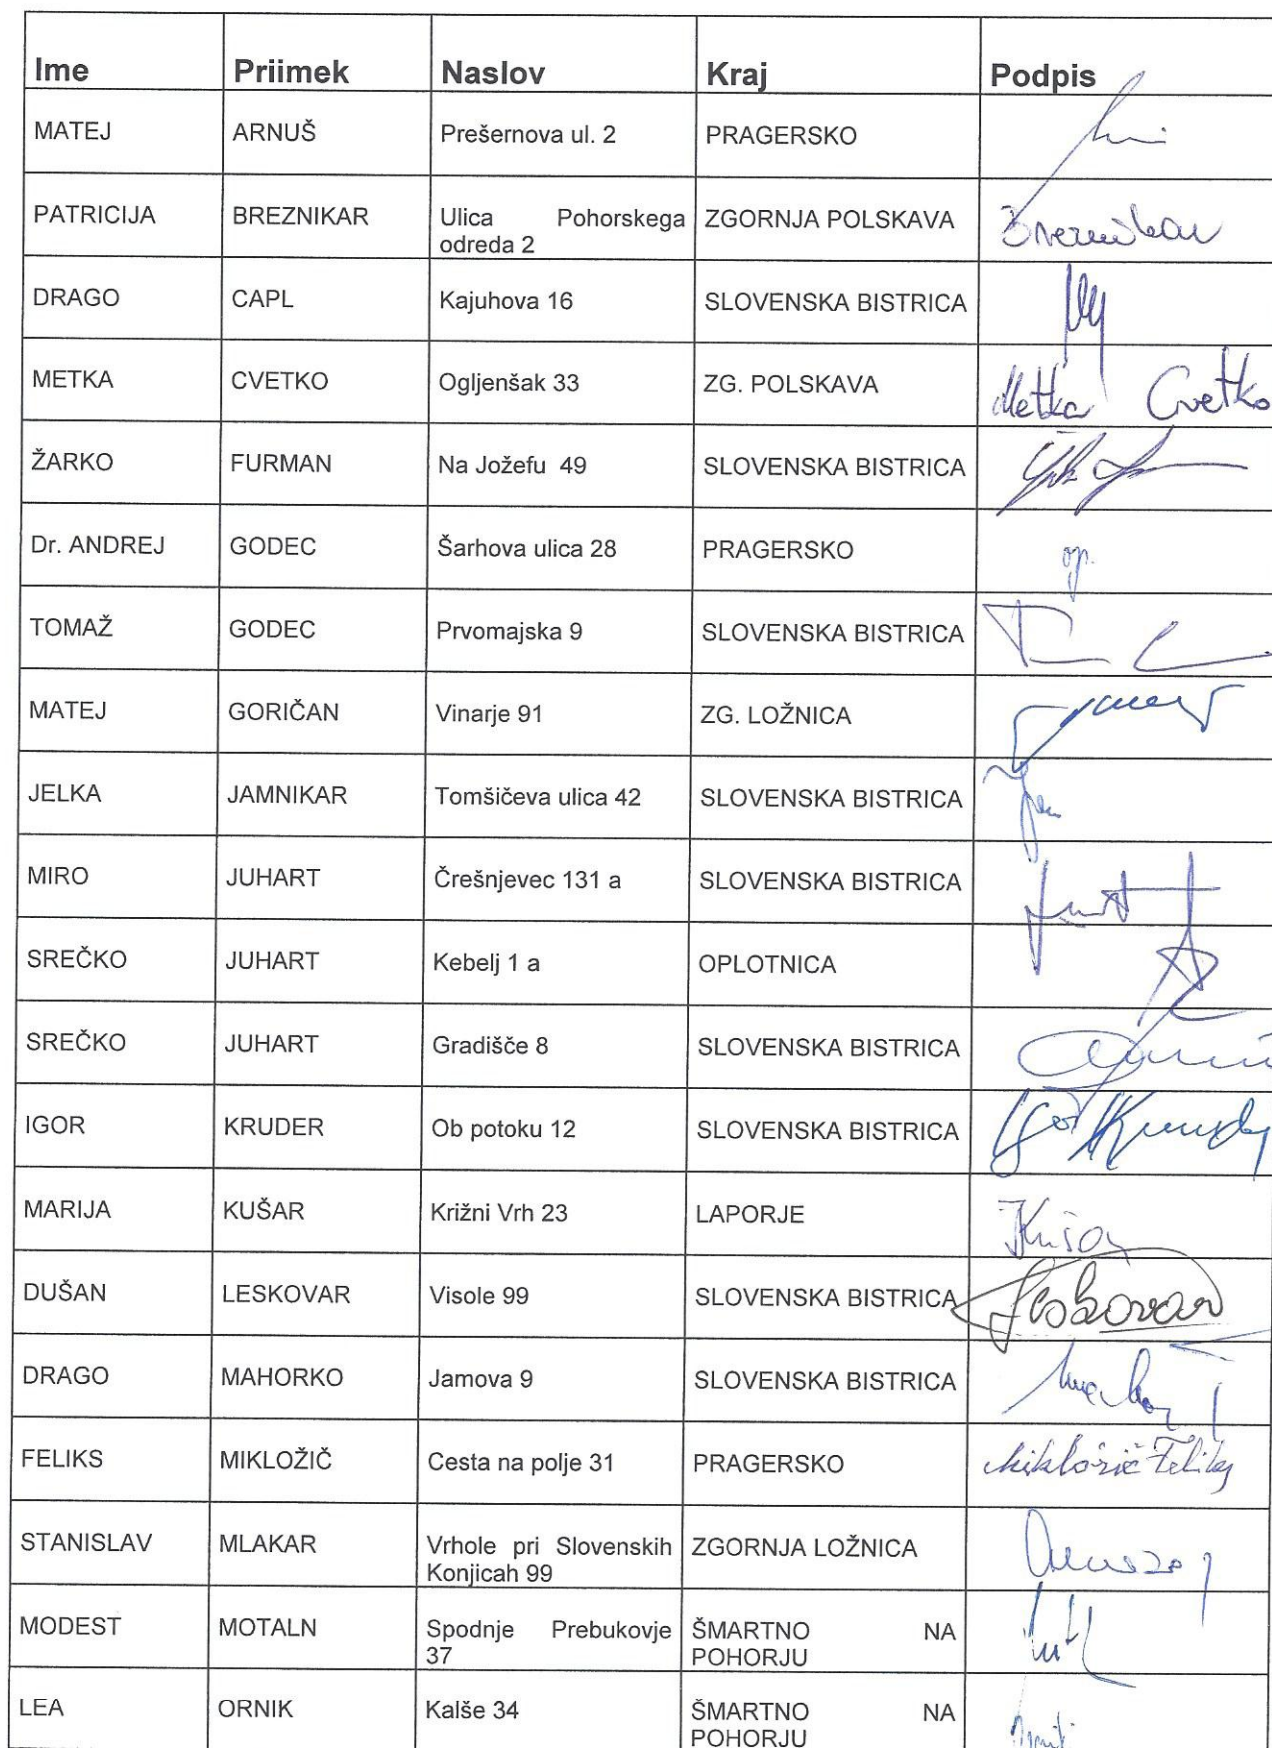 Ime Priimek Naslov Kraj Podpis
MATEJ ARNUŠ Prešernova ul. 2 PRAGERSKO
PATRICIJA BREZNIKAR Ulica Pohorskega ZGORNJA POLSKAVA Breznikar
odreda 2
DRAGO CAPL Kajuhova 16 SLOVENSKA BISTRICA
METKA CVETKO Ogljenšak 33 ZG. POLSKAVA Metka Cvetko
ŽARKO FURMAN Na Jožefu 49 SLOVENSKA BISTRICA
Dr. ANDREJ GODEC Šarhova ulica 28 PRAGERSKO op.
TOMAŽ GODEC Prvomajska 9 SLOVENSKA BISTRICA
MATEJ GORIČAN Vinarje 91 ZG. LOŽNICA
JELKA JAMNIKAR Tomšičeva ulica 42 SLOVENSKA BISTRICA
MIRO JUHART Črešnjevec 131 a SLOVENSKA BISTRICA
SREČKO JUHART Kebelj 1 a OPLOTNICA
SREČKO JUHART Gradišče 8 SLOVENSKA BISTRICA
IGOR KRUDER Ob potoku 12 SLOVENSKA BISTRICA
MARIJA KUŠAR Križni Vrh 23 LAPORJE
DUŠAN LESKOVAR Visole 99 SLOVENSKA BISTRICA Leskovar
DRAGO MAHORKO Jamova 9 SLOVENSKA BISTRICA
FELIKS MIKLOŽIČ Cesta na polje 31 PRAGERSKO Mikložič Feliks
STANISLAV MLAKAR Vrhole pri Slovenskih ZGORNJA LOŽNICA
Konjicah 99
MODEST MOTALN Spodnje Prebukovje ŠMARTNO NA
37 POHORJU
LEA ORNIK Kalše 34 ŠMARTNO NA
POHORJU